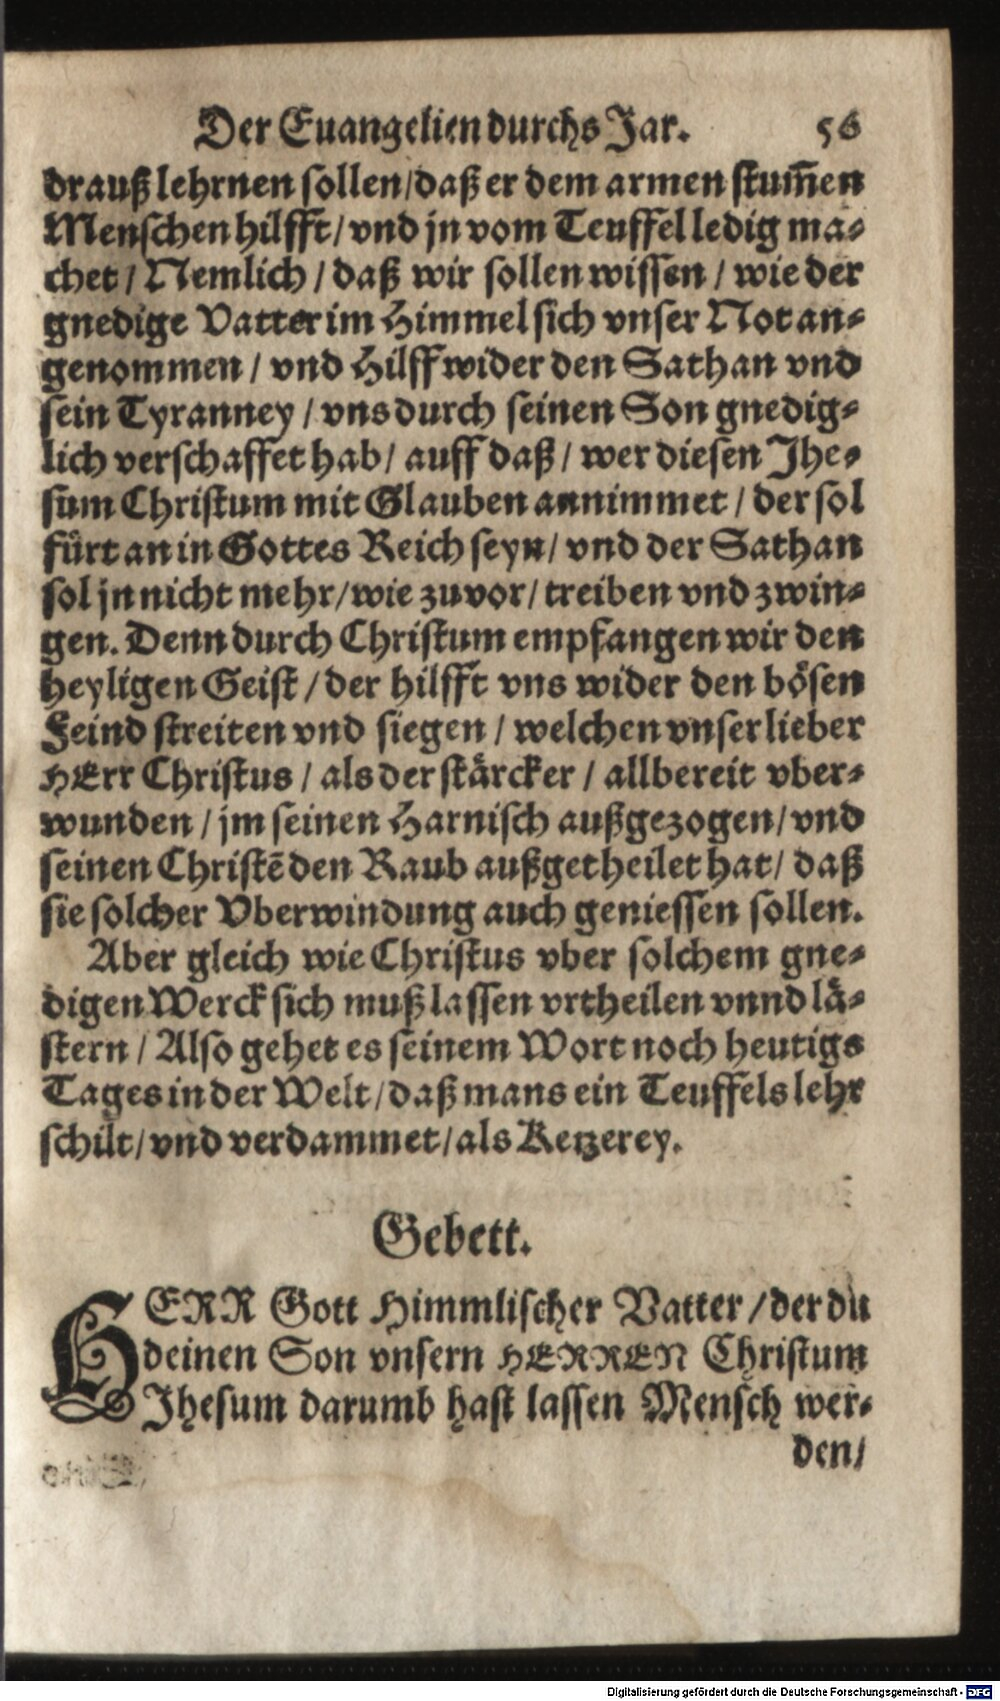 Der Euangelien durchs Jar. 56
drauß lehrnen sollen/daß er dem armen stum̄en
Menschen hilfft/vnd jn vom Teuffel ledig ma-
chet/Nemlich/daß wir sollen wissen/wie der
gnedige Vatter im Himmel sich vnser Not an-
genommen/vnd Hilff wider den Sathan vnd
sein Tyranney/vns durch seinen Son gnedig-
lich verschaffet hab/auff daß/wer diesen Jhe-
sum Christum mit Glauben annimmet/der sol
fürt an in Gottes Reich seyn/vnd der Sathan
sol jn nicht mehr/wie zuvor/treiben vnd zwin-
gen. Denn durch Christum empfangen wir den
heyligen Geist/der hilfft vns wider den bösen
Feind streiten vnd siegen/welchen vnser lieber
HErr Christus/als der stärcker/allbereit vber-
wunden/jm seinen Harnisch außgezogen/vnd
seinen Christē den Raub außgetheilet hat/daß
sie solcher Vberwindung auch geniessen sollen.
Aber gleich wie Christus vber solchem gne-
digen Werck sich muß lassen vrtheilen vnnd lä-
stern/Also gehet es seinem Wort noch heutigs
Tages in der Welt/daß mans ein Teuffels lehr
schilt/vnd verdammet/als Ketzerey.
Gebett.
HERR Gott Himmlischer Vatter/der du
deinen Son vnsern HERREN Christum
Jhesum darumb hast lassen Mensch wer-
den/
Digitalisierung gefördert durch die Deutsche Forschungsgemeinschaft - DFG